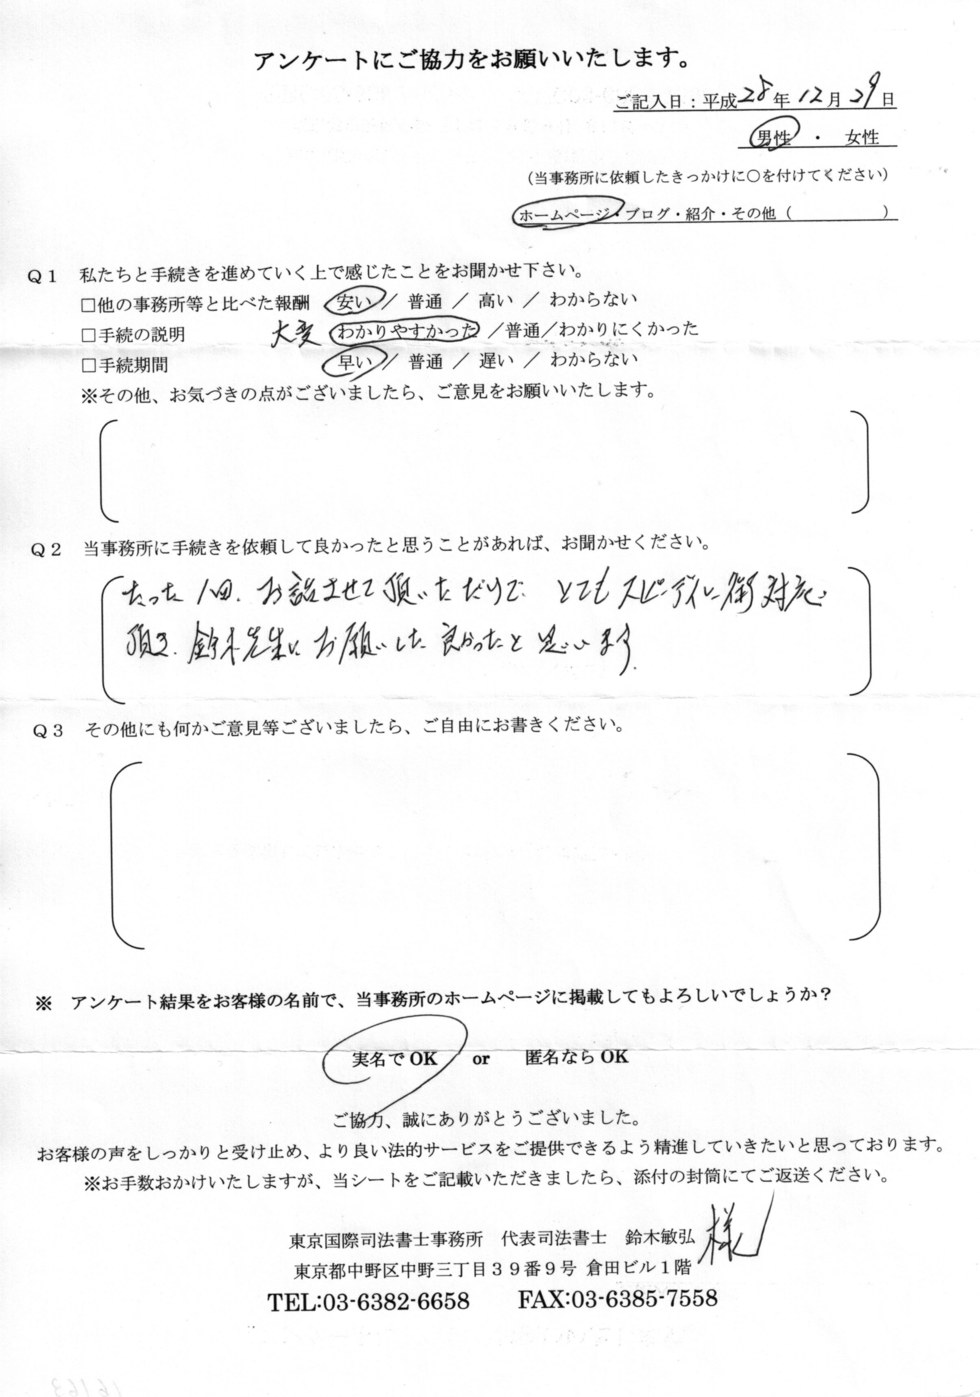 アンケートにご協力をお願いいたします。
ご記入日：平成28年12月29日
男性 ・ 女性
（当事務所に依頼したきっかけに○を付けてください）
ホームページ・ブログ・紹介・その他（　　　　　）
Q1 私たちと手続きを進めていく上で感じたことをお聞かせ下さい。
□他の事務所等と比べた報酬 安い／ 普通 ／ 高い ／ わからない
□手続の説明 大変 わかりやすかった ／普通／わかりにくかった
□手続期間 早い／ 普通 ／ 遅い ／ わからない
※その他、お気づきの点がございましたら、ご意見をお願いいたします。
Q2 当事務所に手続きを依頼して良かったと思うことがあれば、お聞かせください。
たった1回、お話させて頂いただけで とてもスピーディに御対応
頂き、鈴木先生に お願いした 良かったと 思います。
Q3 その他にも何かご意見等ございましたら、ご自由にお書きください。
※ アンケート結果をお客様の名前で、当事務所のホームページに掲載してもよろしいでしょうか？
実名でOK or 匿名ならOK
ご協力、誠にありがとうございました。
お客様の声をしっかりと受け止め、より良い法的サービスをご提供できるよう精進していきたいと思っております。
※お手数おかけいたしますが、当シートをご記載いただきましたら、添付の封筒にてご返送ください。
東京国際司法書士事務所 代表司法書士 鈴木敏弘 様
東京都中野区中野三丁目39番9号 倉田ビル1階
TEL:03-6382-6658 FAX:03-6385-7558